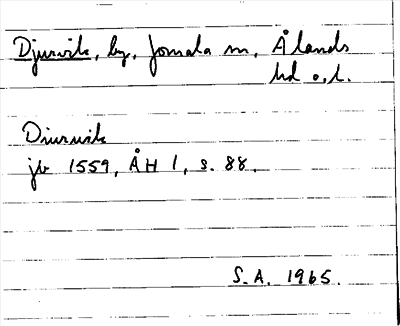 Djurvik, by, Jomala sn, Ålands
hd o. l.
Diurwik
jb 1559, ÅH 1, s. 88.
S.A. 1965.